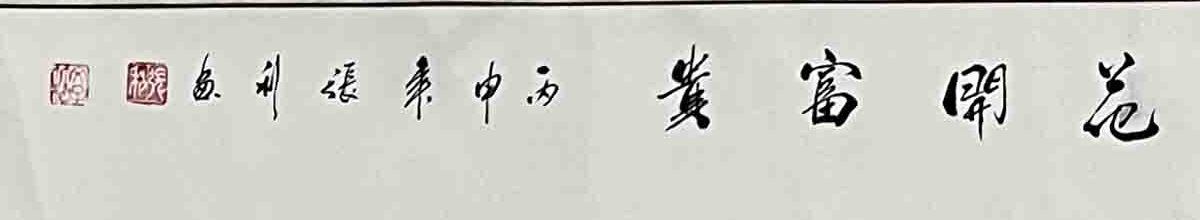 花開富貴 丙申年張利畫